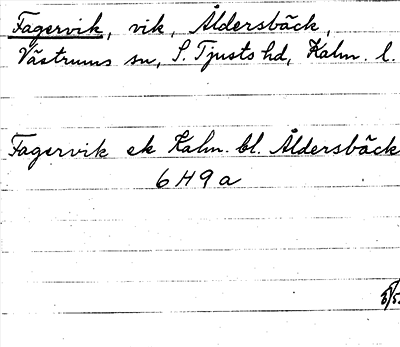 Fagervik, vik, Åldersbäck,
Västrums sn, S. Tjusts hd, Kalm. l.
Fagervik ek Kalm. bl. Åldersbäck
6 H 9 a